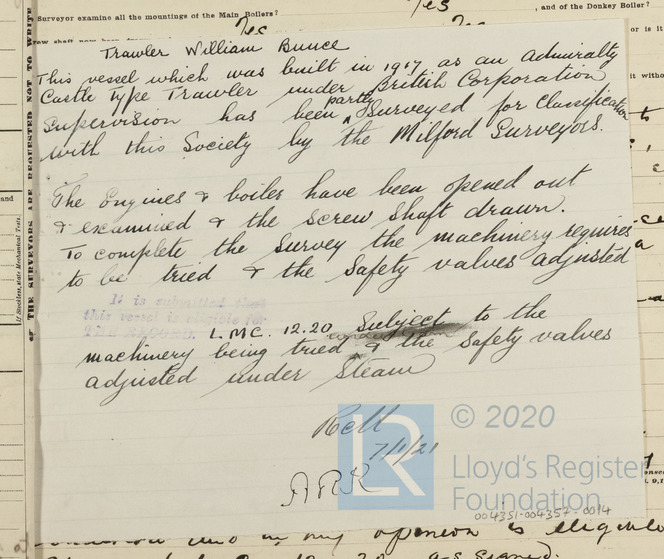 Surveyor examine all the mountings of the Main Boilers?
Yes
Yes
, and of the Donkey Boiler?
Yes
or is it
Trawler William Bunce
This vessel which was built in 1917 as an Admiralty
Castle Type Trawler under British Corporation
supervision has been partly surveyed for Classification
with this Society by the Milford Surveyors.
The Engines & boiler have been opened out
& examined & the screw shaft drawn.
To complete the Survey the machinery requires
to be tried & the Safety valves adjusted
It is submitted that
this vessel is eligible for
THE RECORD. LMC. 12.20 Subject to the
machinery being tried & the Safety valves
adjusted under Steam
7/1/21
ARK
LR
© 2020
Lloyd's Register
Foundation
004351-004357-0014
OF THE SURVEYORS ARE REQUESTED NOT TO WRITE
in my opinion is eligible